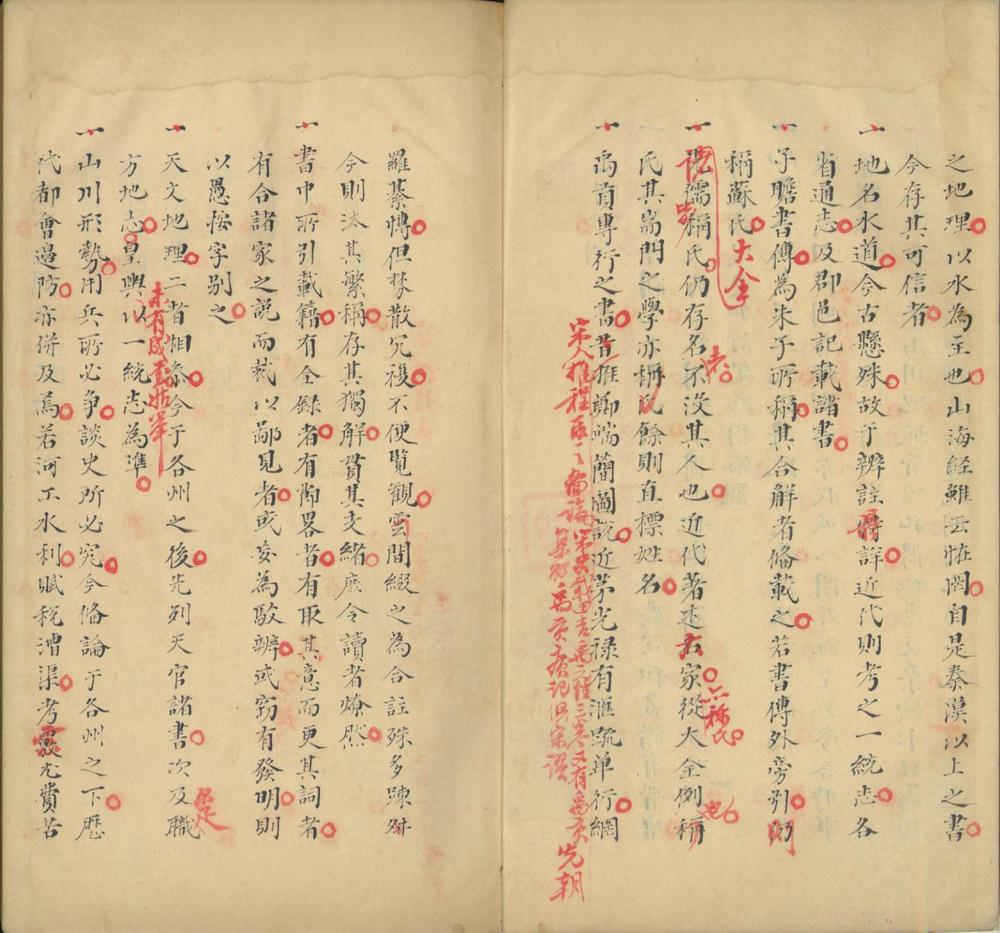 之地理以水為主也山海經雖云恠罔自是秦漢以上之書
今存其可信者
一地名水道今古懸殊故于辨註詳近代則考之一統志各
省通志及郡邑記載諸書
一子瞻書傳為朱子所稱其合解者俻載之若書傳外旁引
稱蘇氏大全
一儒稱氏仍存名不沒其人也近代著述家從大全例稱
氏其耑門之學亦稱氏餘則直標姓名
一禹貢專行之書昔推鄭端簡圖說近茅光祿有滙疏單行網
宋人推程
先朝
羅綦慱但棼散冗複不便覧觀雲間綴之為合註殊多踈舛
今則汰其繁稱存其獨解貫其支緒庶令讀者燎然
一書中所引載籍有全録者有節畧者有取其意而更其詞者
有合諸家之説而裁以鄙見者或妄為駁辨或窃有發明則
以愚按字別之
一天文地理二者相叅今于各州之後先列天官諸書次及職
方地志皇輿以一統志為準
一山川形勢用兵所必争談史所必究今俻論于各州之下歷
代都會邉防亦併及焉若河工水利賦稅漕渠考覈尤費苦